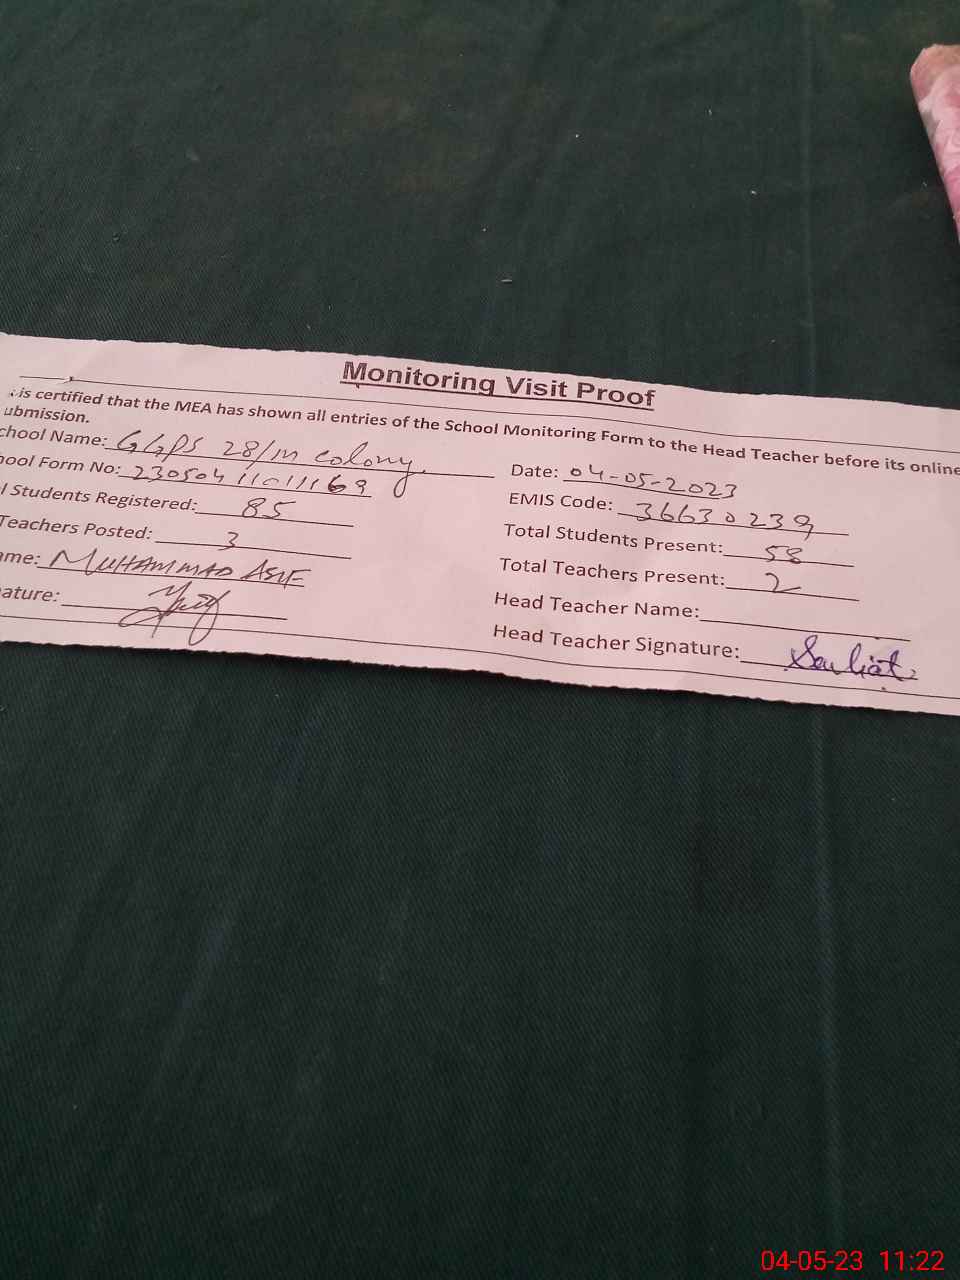 Monitoring Visit Proof
is certified that the MEA has shown all entries of the School Monitoring Form to the Head Teacher before its online
ubmission.
chool Name: GGPS 28/m colony.
Date: 04-05-2023
hool Form No: 23050411011169
EMIS Code: 36630239
l Students Registered: 85
Total Students Present: 58
Teachers Posted: 3
Total Teachers Present: 2
ame: MUHAMMAD ASIF
Head Teacher Name:
ature:
Head Teacher Signature:
04-05-23 11:22